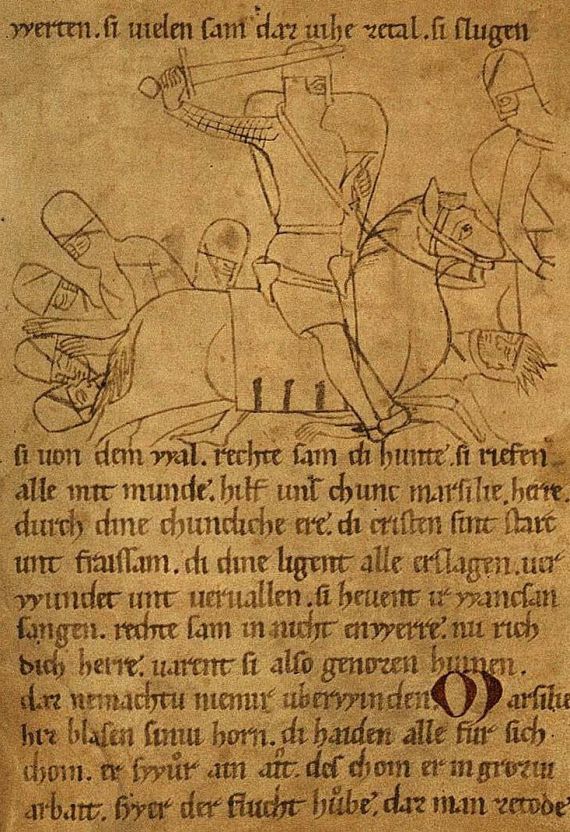 werten. si uielen sam daz uihe zetal. si slugen
si uon dem wal. rechte sam di hunte. si riefen
alle mit munde. hilf unſ chunc marsilie. herre.
durch dine chunchiche ere. di cristen sint starc
unt fraissam. di dine ligent alle erslagen. uer
wundet unt ueruallen. si heuent ir wancsan
sangen. rechte sam in nicht enwerre. nu rich
dich herre. uarent si also genozen hinnen.
daz nemachtu niemir uberwinden. Marsilie
hiz blasen siniu horn. di haiden alle fur sich
chom. er swůr ain ait. des chom er in groziu
arbait. swer der flucht hůbe. daz man ze tode